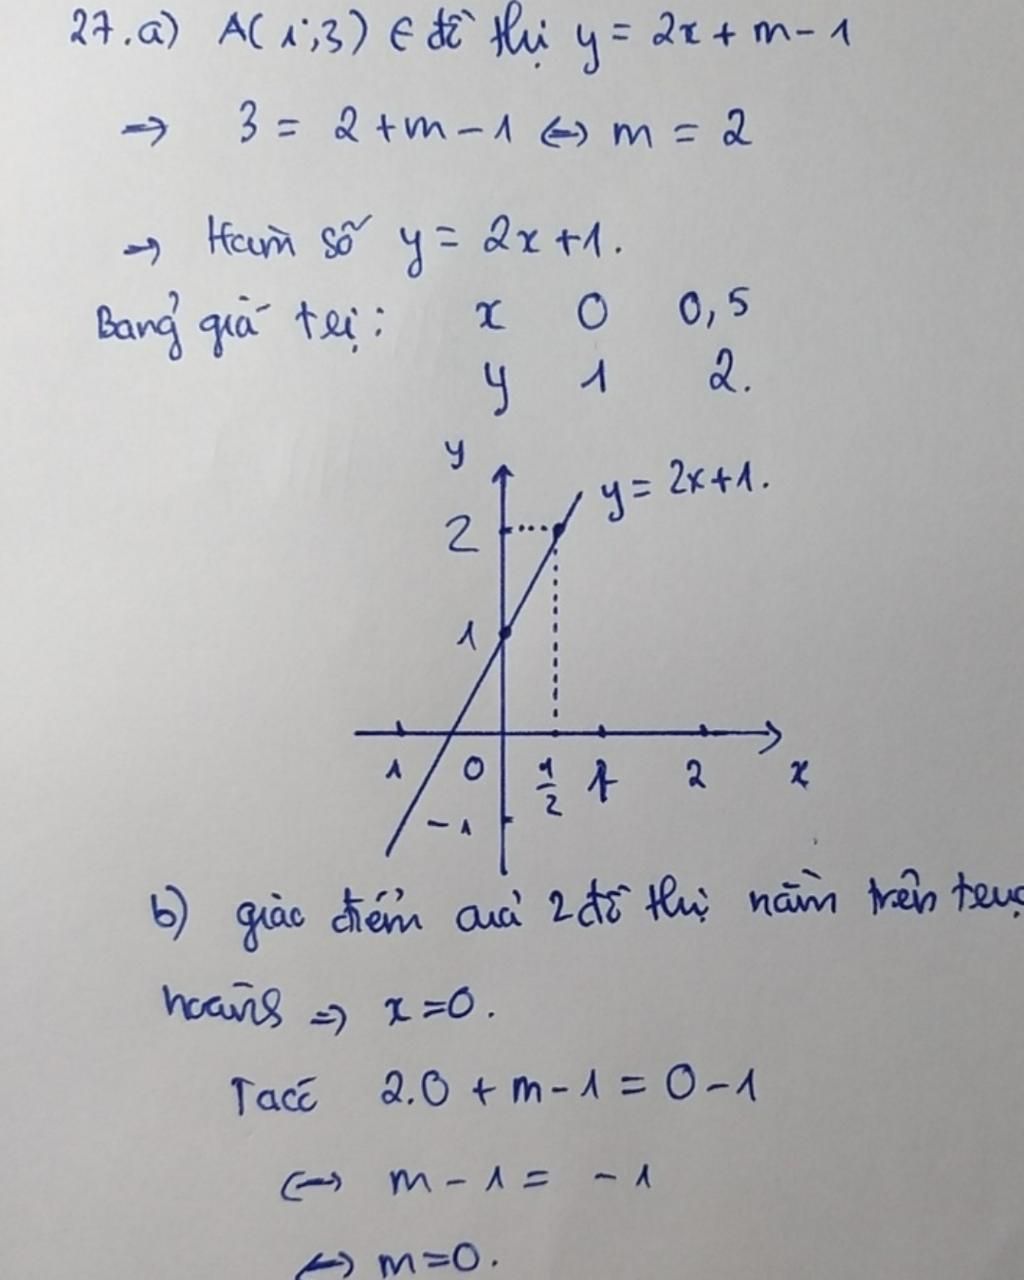 27.a) A(1;3) ∈ đồ thị y = 2x + m - 1
⇒ 3 = 2 + m - 1 ⇔ m = 2
⇒ Hàm số y = 2x + 1.
Bảng giá trị: x 0 0,5
y 1 2.
y
y = 2x + 1.
2
1
1 0 1/2 1 2 x
-1
b) giao điểm của 2 đồ thị nằm trên trục
hoành ⇒ x = 0.
Ta có 2.0 + m - 1 = 0 - 1
⇔ m - 1 = - 1
⇔ m = 0.